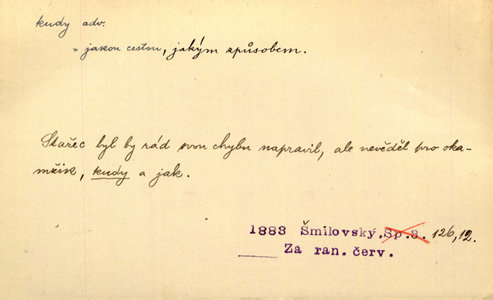 kudy adv.
" jakou cestou, jakým způsobem.
Stařec byl by rád svou chybu napravil, ale nevěděl pro oka-
mžik, kudy a jak.
1883 Šmilovský.Sp.8. 126,12.
Za ran. červ.